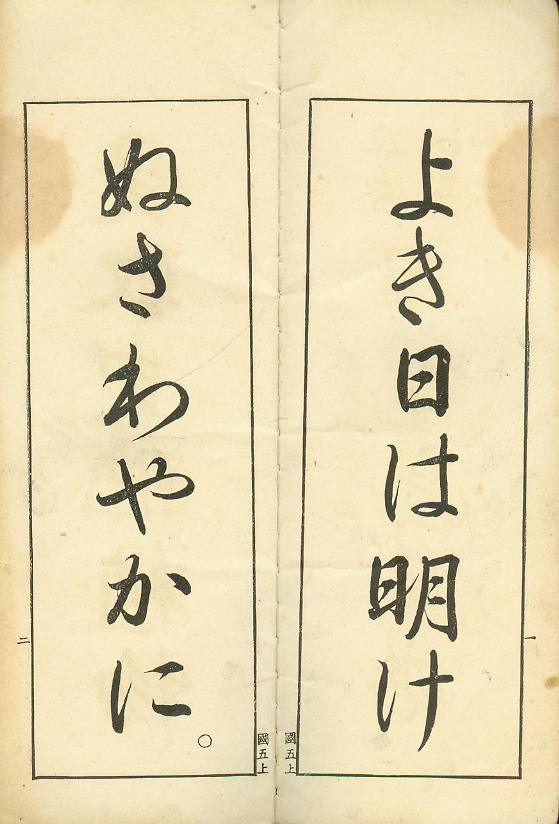 よき日は明け
ぬさわやかに
〇
一
國五上
國五上
二